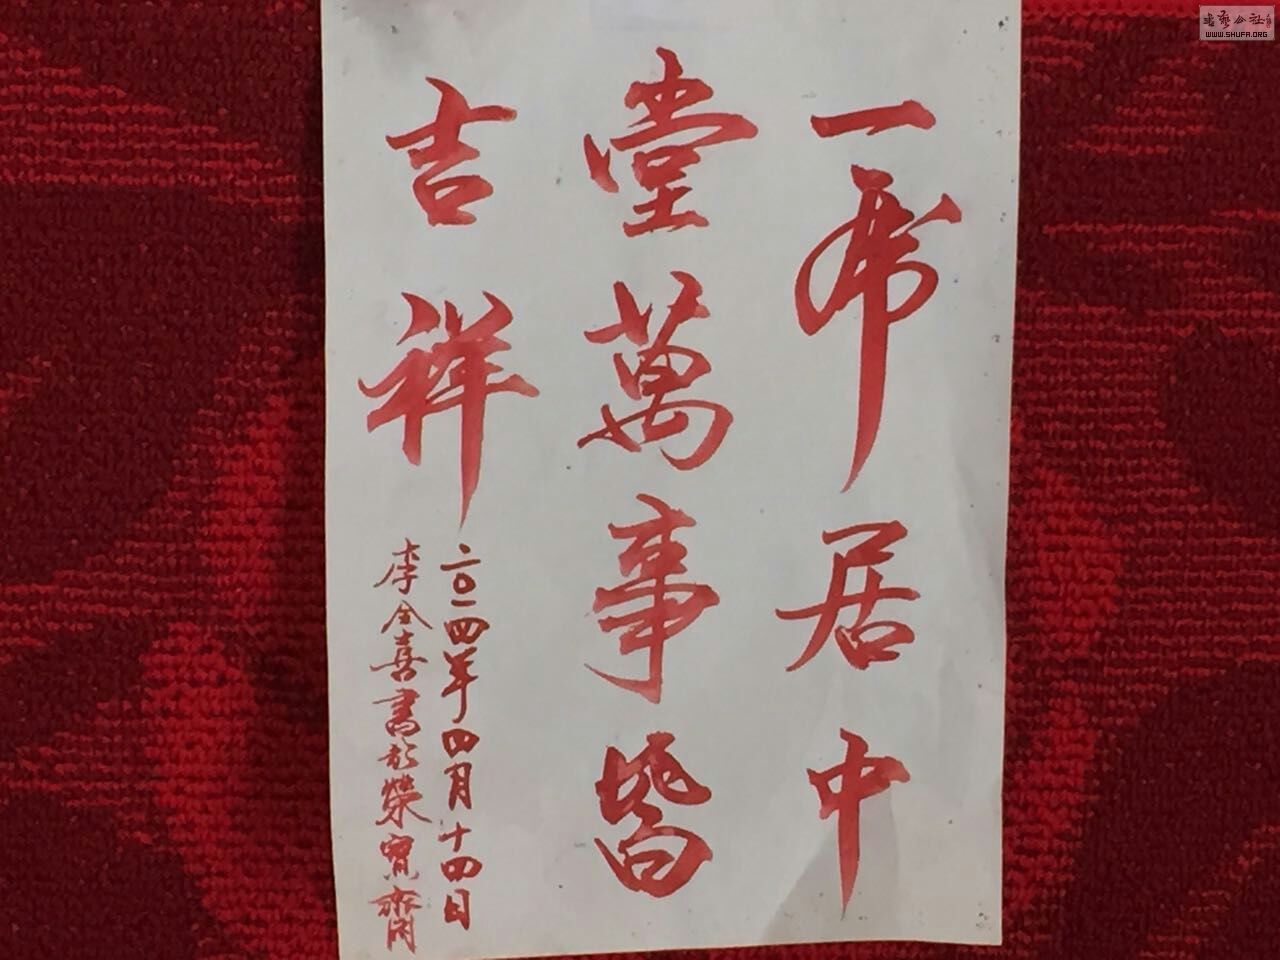 一虎居中
堂萬事皆
吉祥
二〇一四年四月十四日
李全喜書於榮寶齋
書藝公社
WWW.SHUFA.ORG